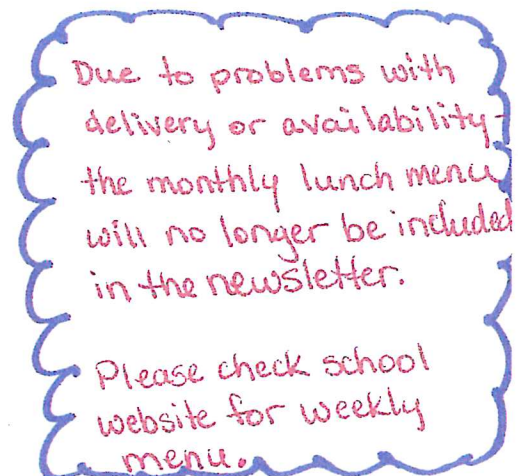 Due to problems with
delivery or availability-
the monthly lunch menu
will no longer be included
in the newsletter.
Please check school
website for weekly
menu.